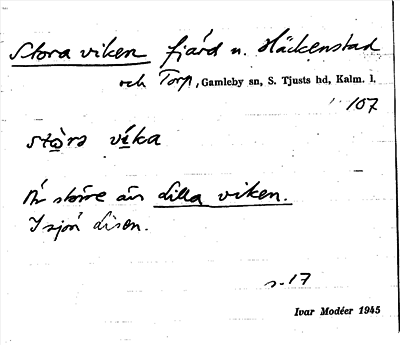 Stora viken fjärd n. Häckenstad
och Torp, Gamleby sn, S. Tjusts hd, Kalm. l.
107
stòrə víka
Är större än Lilla viken.
I sjön Lisen.
s. 17
Ivar Modéer 1945